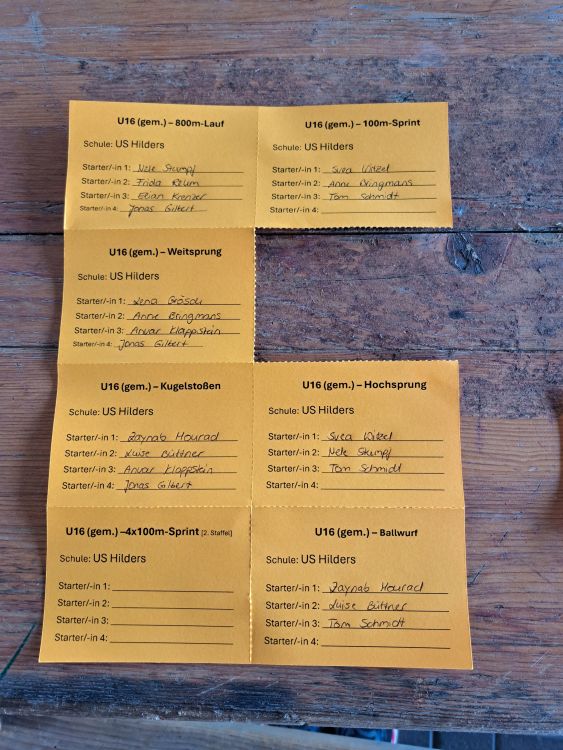 U16 (gem.) – 800m-Lauf
Schule: US Hilders
Starter/-in 1: Nele Stumpf
Starter/-in 2: Frida Baum
Starter/-in 3: Krenzer
Starter/-in 4: Jonas Gilbert
U16 (gem.) – 100m-Sprint
Schule: US Hilders
Starter/-in 1: Svea Witzel
Starter/-in 2: Anne Bringmans
Starter/-in 3: Tom Schmidt
Starter/-in 4:
U16 (gem.) – Weitsprung
Schule: US Hilders
Starter/-in 1: Lena Grösch
Starter/-in 2: Anne Bringmans
Starter/-in 3: Anvar Klappstein
Starter/-in 4: Jonas Gilbert
U16 (gem.) – Kugelstoßen
Schule: US Hilders
Starter/-in 1: Zaynab Mourad
Starter/-in 2: Luise Büttner
Starter/-in 3: Anvar Klappstein
Starter/-in 4: Jonas Gilbert
U16 (gem.) – Hochsprung
Schule: US Hilders
Starter/-in 1: Svea Witzel
Starter/-in 2: Nele Stumpf
Starter/-in 3: Tom Schmidt
Starter/-in 4:
U16 (gem.) –4x100m-Sprint [2. Staffel]
Schule: US Hilders
Starter/-in 1:
Starter/-in 2:
Starter/-in 3:
Starter/-in 4:
U16 (gem.) – Ballwurf
Schule: US Hilders
Starter/-in 1: Zaynab Mourad
Starter/-in 2: Luise Büttner
Starter/-in 3: Tom Schmidt
Starter/-in 4: